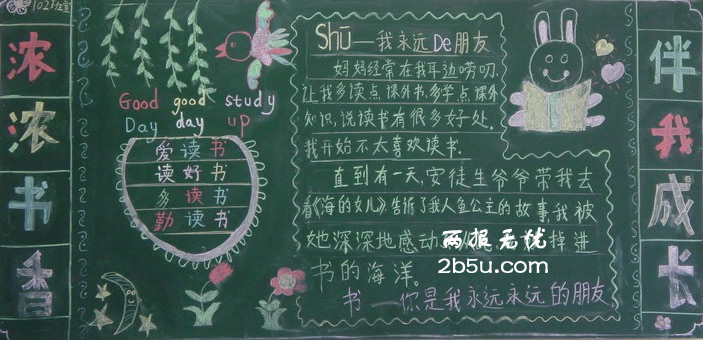 102班宣
浓浓书香
Good good study
Day day up
爱读书
读好书
多读书
勤读书
Shū——我永远De朋友
妈妈经常在我耳边唠叨,
让我多读点课外书,多学点课外
知识,说读书有很多好处。
我开始不太喜欢读书.
直到有一天,安徒生爷爷带我去
看《海的女儿》,告诉了我人鱼公主的故事,我被
她深深地感动 掉进
书的海洋。
书——你是我永远永远的朋友
两报无忧
2b5u.com
伴我成长